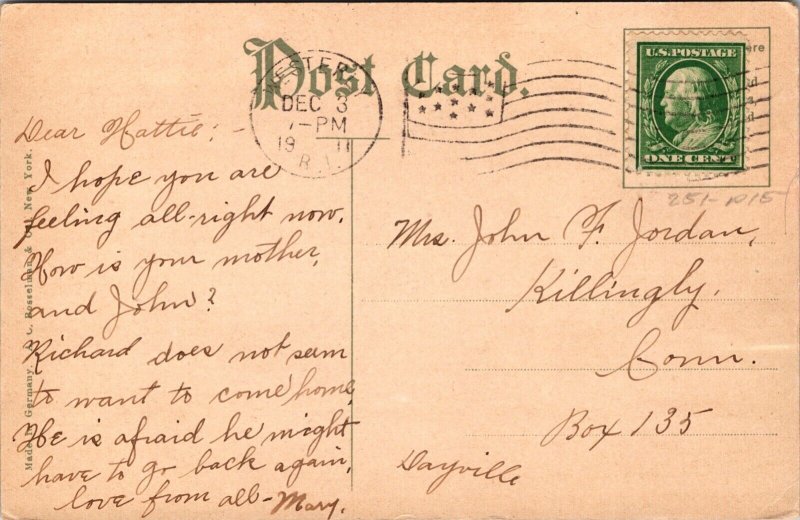 Post Card.
WESTERLY
DEC 3
7-PM
19 11
R.I.
U.S. POSTAGE
ONE CENT
251- D15
Dear Hattie; -
I hope you are
feeling all-right now.
How is your mother,
and John?
Richard does not seem
to want to come home,
He is afraid he might
have to go back again,
love from all- Mary.
Mrs. John F. Jordan,
Killingly.
Conn.
Box 135
Dayville
Made in Germany, A. C. Bosselman & Co., New York.